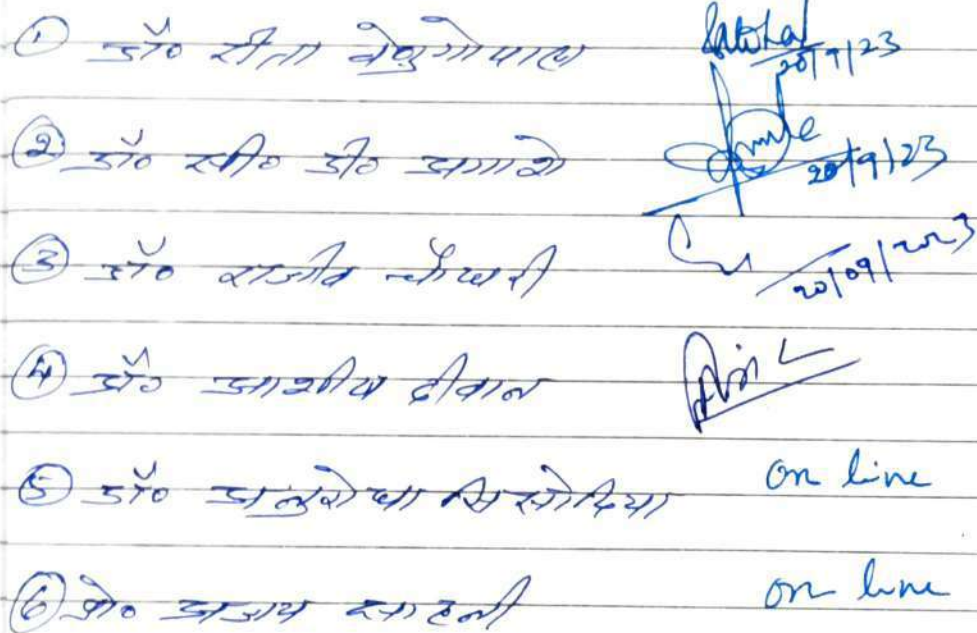 ① डॉ० रीता वेणुगोपाल 20/9/23
② डॉ० सी० डी० आगाशे 20/9/23
③ डॉ० राजीव चौधरी 20/09/2023
④ डॉ० आशीष दीवान
⑤ डॉ० अनुराधा सिसोदिया on line
⑥ प्रो० अजय साहनी on line